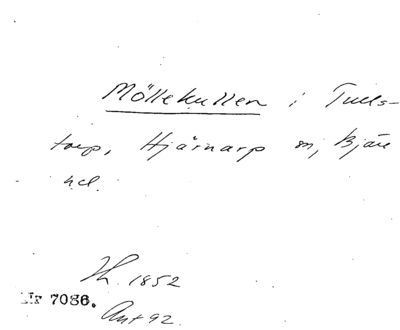 Möllekullen i Tuels-
torp, Hjärnarp sn, Bjäre
hd.
H. 1852
Nr 7086.
Ant 92.